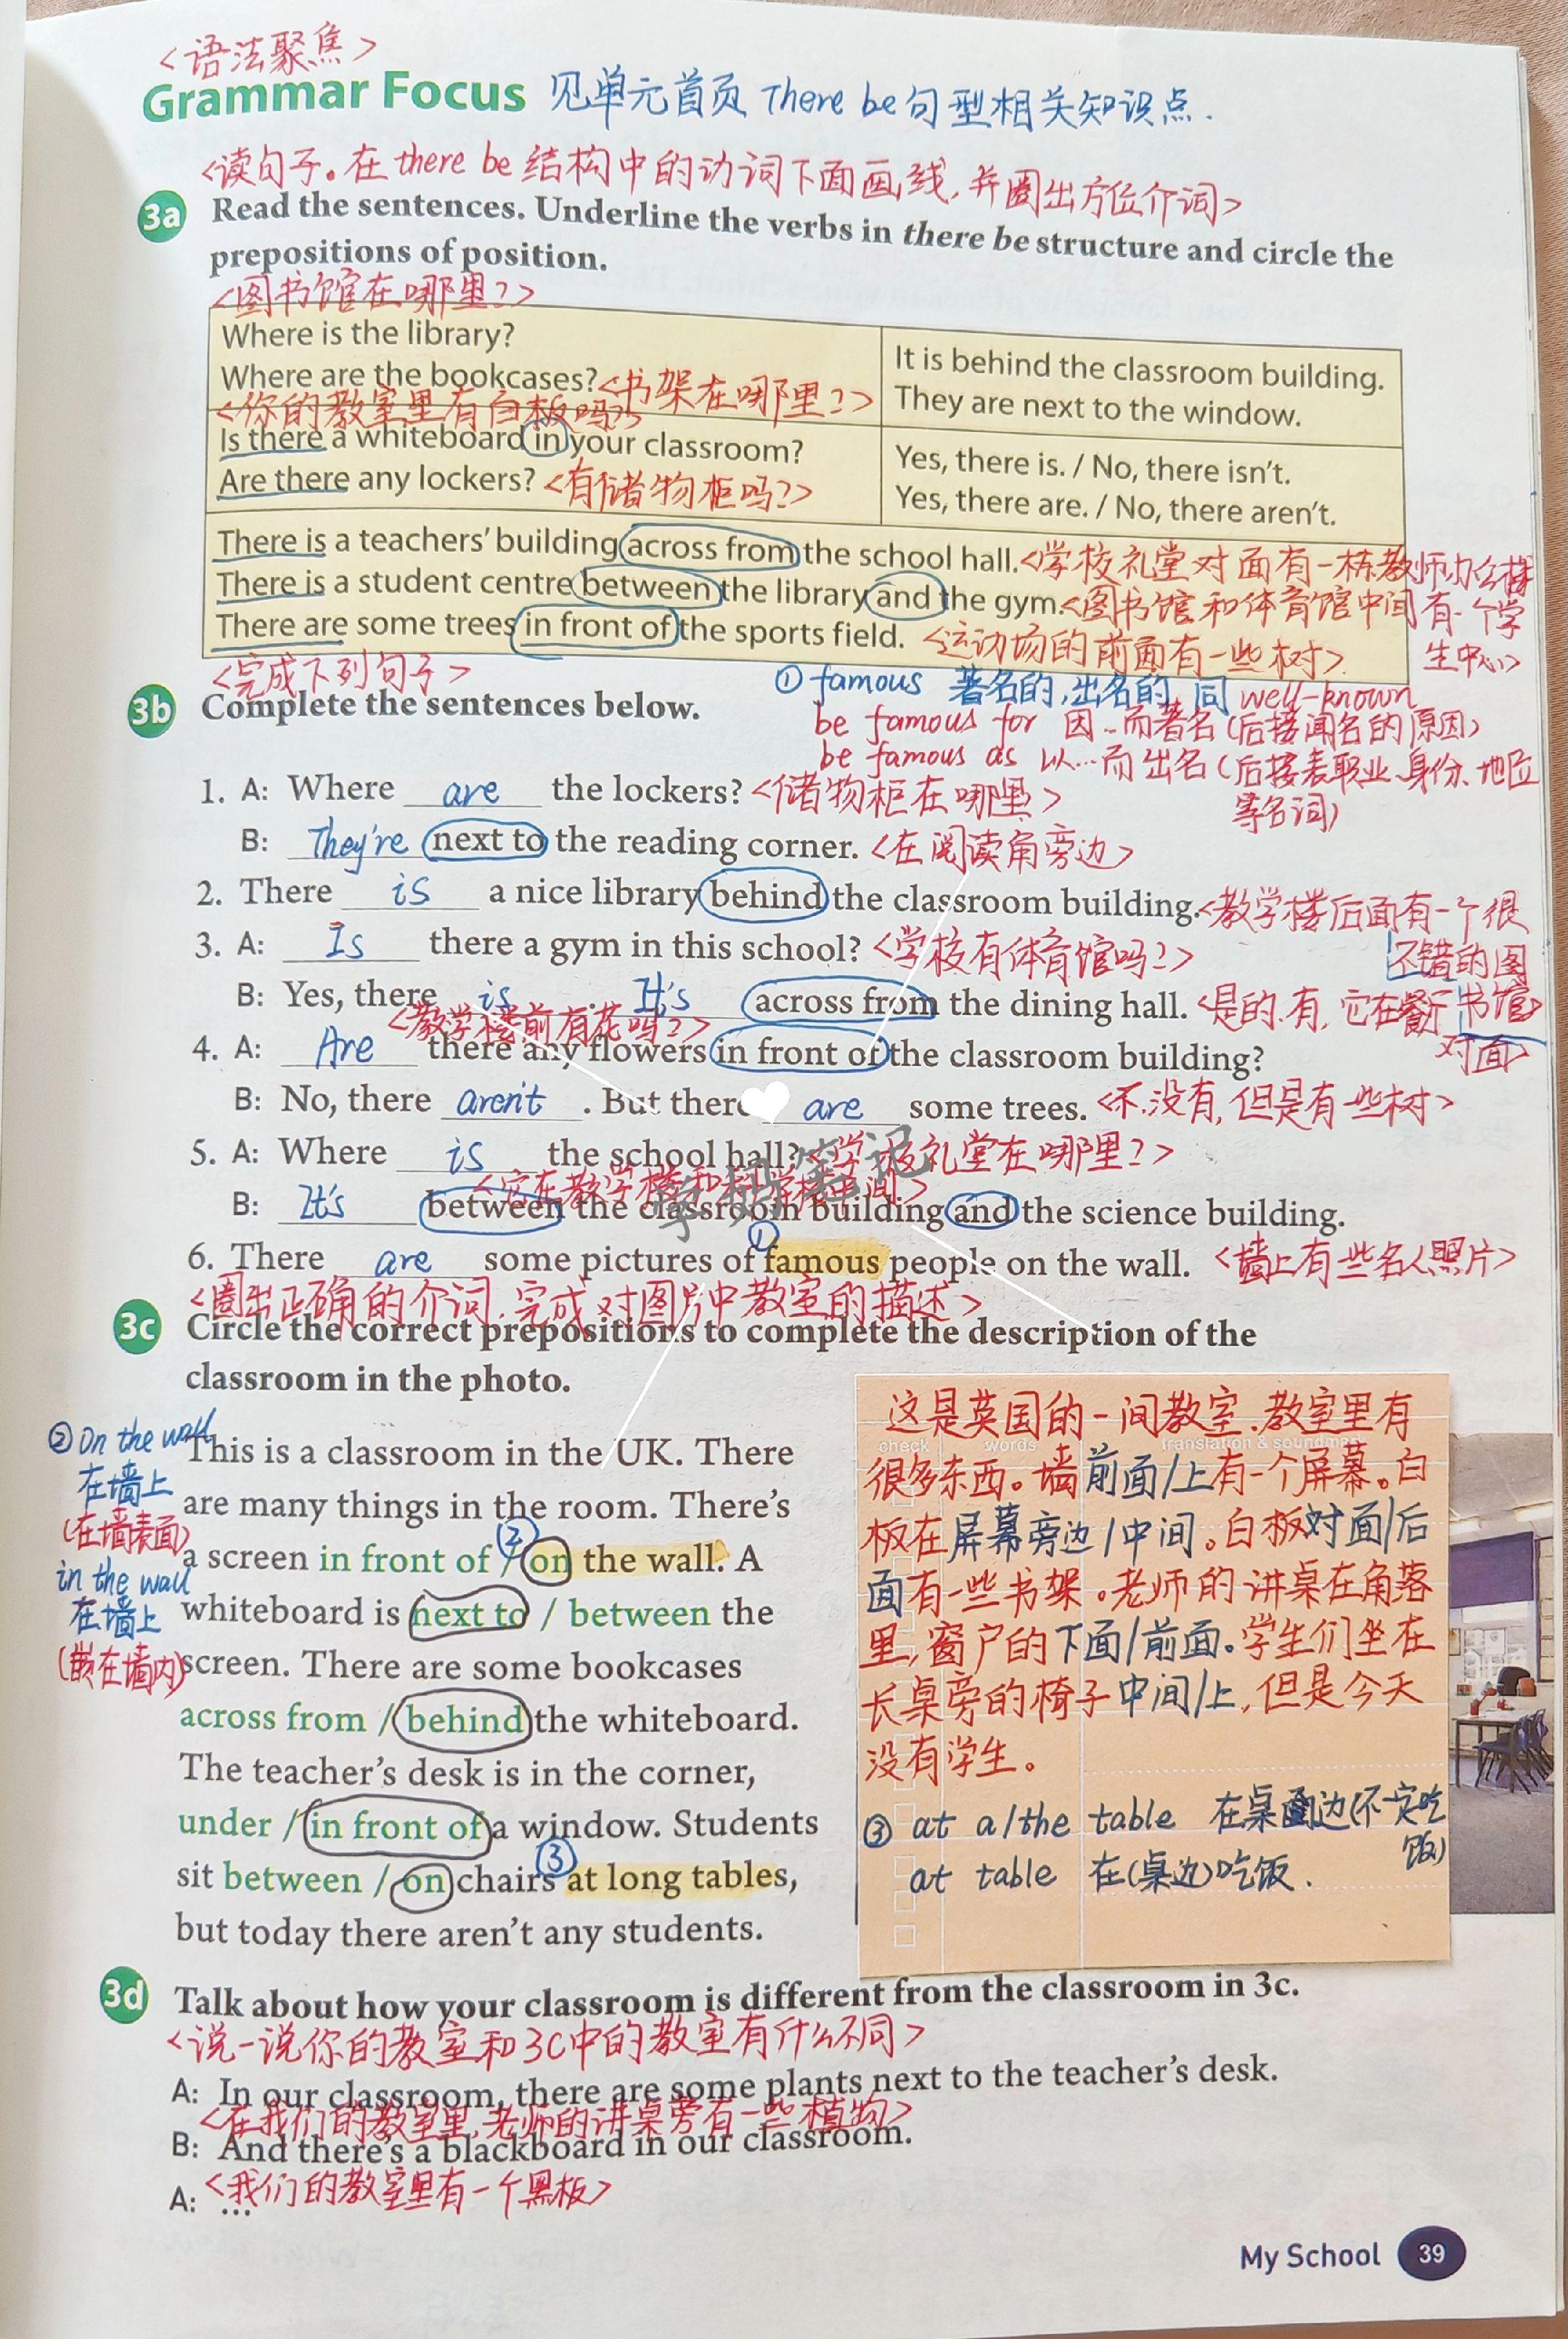 <语法聚焦>
Grammar Focus 见单元首页 There be句型相关知识点.
<读句子。在there be结构中的动词下面画线,并圈出方位介词>
3a Read the sentences. Underline the verbs in there be structure and circle the
prepositions of position.
<图书馆在哪里?>
Where is the library?
Where are the bookcases? <书架在哪里?>
It is behind the classroom building.
They are next to the window.
<你的教室里有白板吗?>
Is there a whiteboard in your classroom?
Are there any lockers? <有储物柜吗?>
Yes, there is. / No, there isn't.
Yes, there are. / No, there aren't.
There is a teachers' building across from the school hall. <学校礼堂对面有一栋教师办公楼
There is a student centre between the library and the gym. <图书馆和体育馆中间有一个学
生中心>
There are some trees in front of the sports field. <运动场的前面有一些树>
<完成下列句子>
3b Complete the sentences below.
① famous 著名的,出名的 同 well-known
be famous for 因…而著名(后接闻名的原因)
be famous as 以…而出名(后接表职业、身份、地位
等名词)
1. A: Where are the lockers? <储物柜在哪里>
B: They're next to the reading corner. <在阅读角旁边>
2. There is a nice library behind the classroom building. <教学楼后面有一个很
不错的图
书馆>
3. A: Is there a gym in this school? <学校有体育馆吗?>
B: Yes, there is. It's across from the dining hall. <是的.有,它在餐厅
对面>
<教学楼前有花吗?>
4. A: Are there any flowers in front of the classroom building?
B: No, there aren't. But there are some trees. <不,没有,但是有一些树>
5. A: Where is the school hall? <学校礼堂在哪里?>
<它在教学楼和科学楼中间>
B: It's between the classroom building and the science building.
①
6. There are some pictures of famous people on the wall. <墙上有些名人照片>
<圈出正确的介词,完成对图片中教室的描述>
3c Circle the correct prepositions to complete the description of the
classroom in the photo.
② On the wall
在墙上
(在墙表面)
in the wall
在墙上
(嵌在墙内)
This is a classroom in the UK. There
are many things in the room. There's
a screen in front of / ② on the wall. A
whiteboard is next to / between the
screen. There are some bookcases
across from / behind the whiteboard.
The teacher's desk is in the corner,
under / in front of a window. Students
sit between / on chairs ③ at long tables,
but today there aren't any students.
这是英国的一间教室.教室里有
check words translation &
很多东西。墙前面/上有一个屏幕。白
板在屏幕旁边/中间。白板对面/后
面有一些书架。老师的讲桌在角落
里,窗户的下面/前面。学生们坐在
长桌旁的椅子中间/上,但是今天
没有学生。
③ at a/the table 在桌边(不一定吃
饭)
at table 在(桌边)吃饭.
3d Talk about how your classroom is different from the classroom in 3c.
<说一说你的教室和3C中的教室有什么不同>
A: In our classroom, there are some plants next to the teacher's desk.
<在我们的教室里,老师的讲桌旁有一些植物>
B: And there's a blackboard in our classroom.
<我们的教室里有一个黑板>
A: …
My School 39